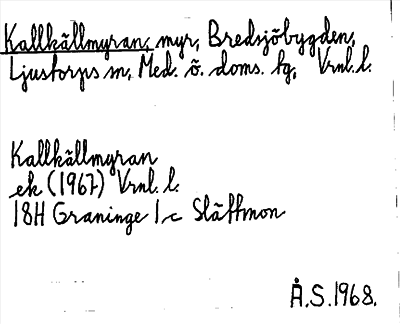 Kallkällmyran, myr, Bredsjöbygden,
Ljustorps sn, Med. ö. doms. tg, Vrnl. l.
Kallkällmyran
ek (1967) Vrnl. l.
18H Graninge 1c Slättmon
Å.S. 1968.